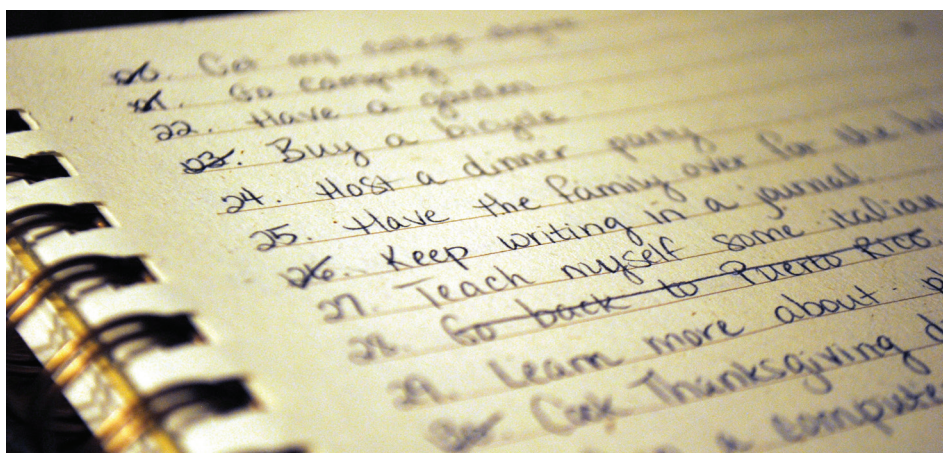 20. Get my college degree
21. Go camping
22. Have a garden
23. Buy a bicycle
24. Host a dinner party
25. Have the family over for the
26. Keep writing in a journal.
27. Teach myself some italian
28. Go back to Puerto Rico
29. Learn more about
30. Cook Thanksgiving
a compute